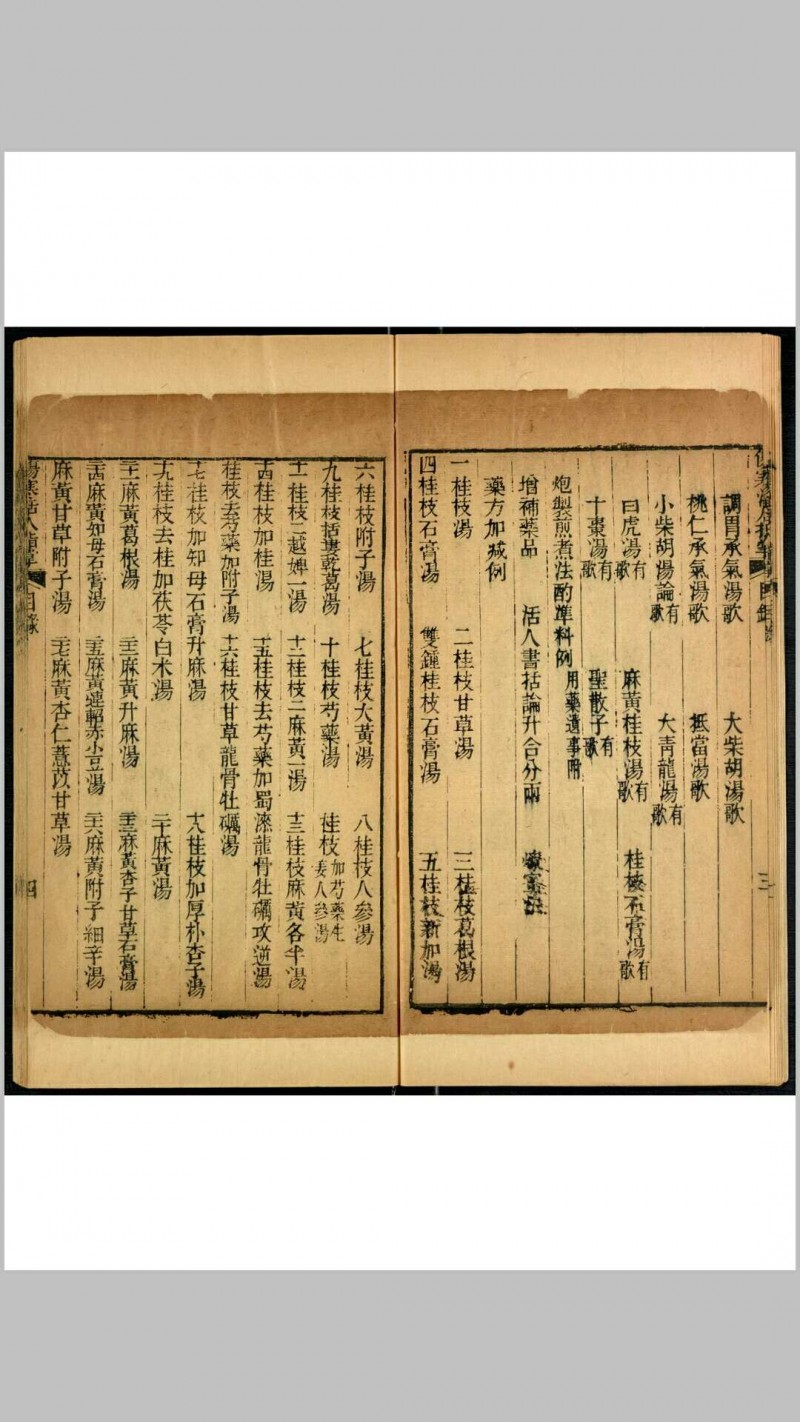 調胃承氣湯歌　大柴胡湯歌
桃仁承氣湯歌　抵當湯歌
小柴胡湯論有歌　大青龍湯有歌
白虎湯有歌　麻黃桂枝湯有歌　桂枝石膏湯有歌
十棗湯有歌　聖散子有歌
炮製煎煮法酌準料例　用藥遺事附
增補藥品　活人書括論升合分兩
藥方加減例
一桂枝湯　二桂枝甘草湯　三桂枝葛根湯
四桂枝石膏湯　雙鍾桂枝石膏湯　五桂枝新加湯
三
六桂枝附子湯　七桂枝大黃湯　八桂枝八參湯
九桂枝栝蔞乾葛湯　十桂枝芍藥湯　桂枝加芍藥生姜人參湯
十一桂枝二越婢一湯　十二桂枝二麻黃一湯　十三桂枝麻黃各半湯
十四桂枝加桂湯　十五桂枝去芍藥加蜀漆龍骨牡礪攻逆湯
桂枝去芍藥加附子湯　十六桂枝甘草龍骨牡礪湯
十七桂枝加知母石膏升麻湯　十八桂枝加厚朴杏子湯
十九桂枝去桂加茯苓白朮湯　二十麻黃湯
二十一麻黃葛根湯　二十二麻黃升麻湯　二十三麻黃杏子甘草石膏湯
二十四麻黃知母石膏湯　二十五麻黃連軺赤小豆湯　二十六麻黃附子細辛湯
麻黃甘草附子湯　二十七麻黃杏仁薏苡甘草湯
目錄　四